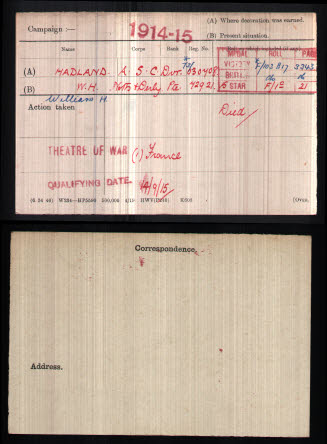 (A) Where decoration was earned.
Campaign :— 1914-15
(B) Present situation.
Name Corps Rank Reg. No.
MEDAL ROLL PAGE
(A) HADLAND. A. S. C. Dvr. T2/030408 VICTORY F/103 B17 3343
BRITISH do do
(B) W.H. Notts & Derby Pte. 42921. 15 STAR F/1B 21
William H.
Action taken Died
THEATRE OF WAR (1) France
QUALIFYING DATE. 14/9/15
(6 34 46) W234—HP5590 500,000 4/19 HWV(P240) K608 [OVER.
Correspondence.
Address.